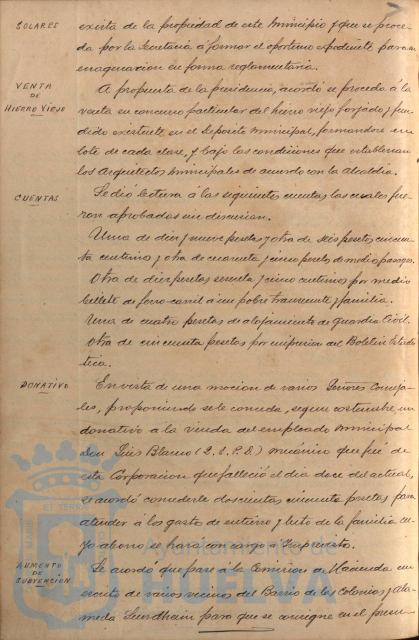 SOLARES
exista de la propiedad de este Municipio y que se proce-
da por la Secretaría á formar el oportuno expediente para su
enagenacion en forma reglamentaria.
VENTA
DE
HIERRO VIEJO
A propuesta de la presidencia, acordó se proceda á la
venta en concurso particular del hierro viejo forjado y fun-
dido existente en el Deposito Municipal, formandose un
lote de cada clase, y bajo las condiciones que establezcan
los Arquitectos municipales de acuerdo con la Alcaldia.
CUENTAS
Se dió lectura á las siguientes cuentas las cuales fue-
ron aprobadas sin discusion.
Una de diez y nueve pesetas y otra de seis pesetas cincuen-
ta centimos y otra de cuarenta y cinco pesetas de medios pasages.
Otra de diez pesetas sesenta y cinco centimos por medio
billete de ferro-carril á un pobre transeunte y familia.
Una de cuatro pesetas de alojamiento de guardia Civil.
Otra de cincuenta pesetas por impresion del Boletin Estadis-
tica.
DONATIVO
En vista de una mocion de varios Señores Conceja-
les, proponiendo se le conceda, segun costumbre, un
donativo a la viuda del empleado Municipal
Don Luis Blanco (Q. S. P. D.) mecánico que fué de
esta Corporacion que falleció el dia doce del actual,
se acordó concederle doscientas cincuenta pesetas para
atender á los gastos de entierro y luto de la familia cu-
yo abono se hará con cargo á Imprevistos.
AUMENTO
DE
SUBVENCIÓN
Se acordó que pase á la Comision de Hacienda un
escrito de varios vecinos del Barrio de las Colonias y Ala-
meda Sundheim para que se consigne en el presu-
Ayuntamiento de
HUELVA